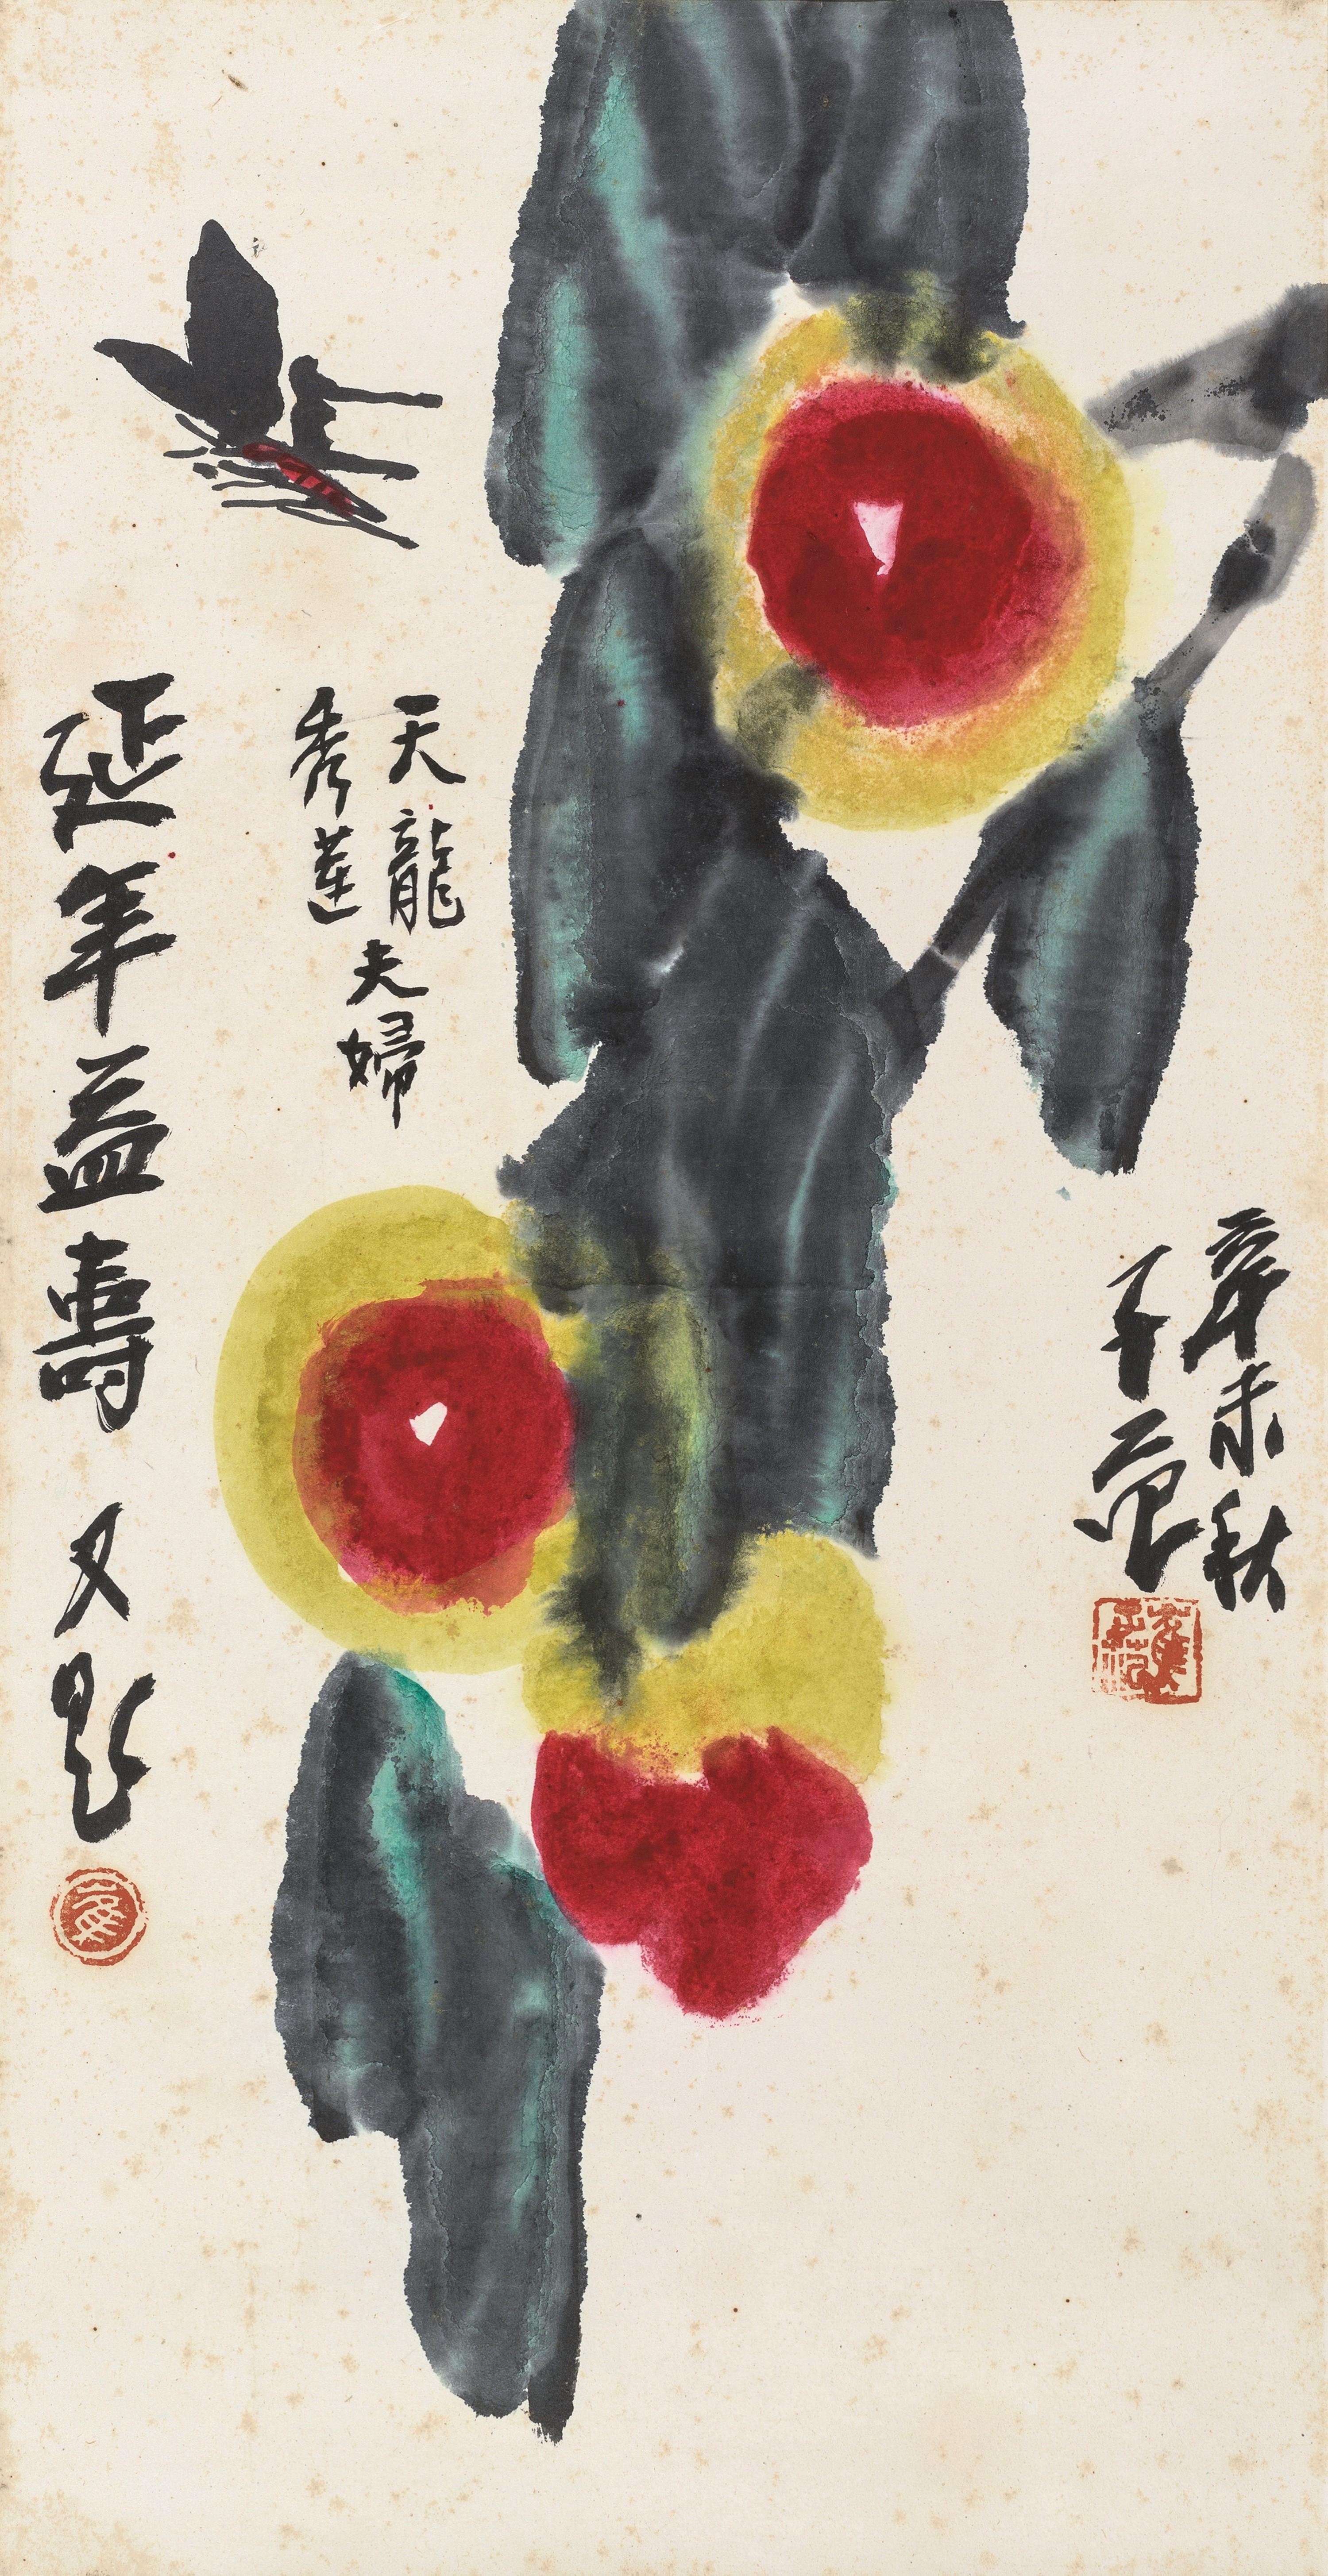 辛未秋
子范
天龍
秀蓮
夫婦
延年益壽 又題